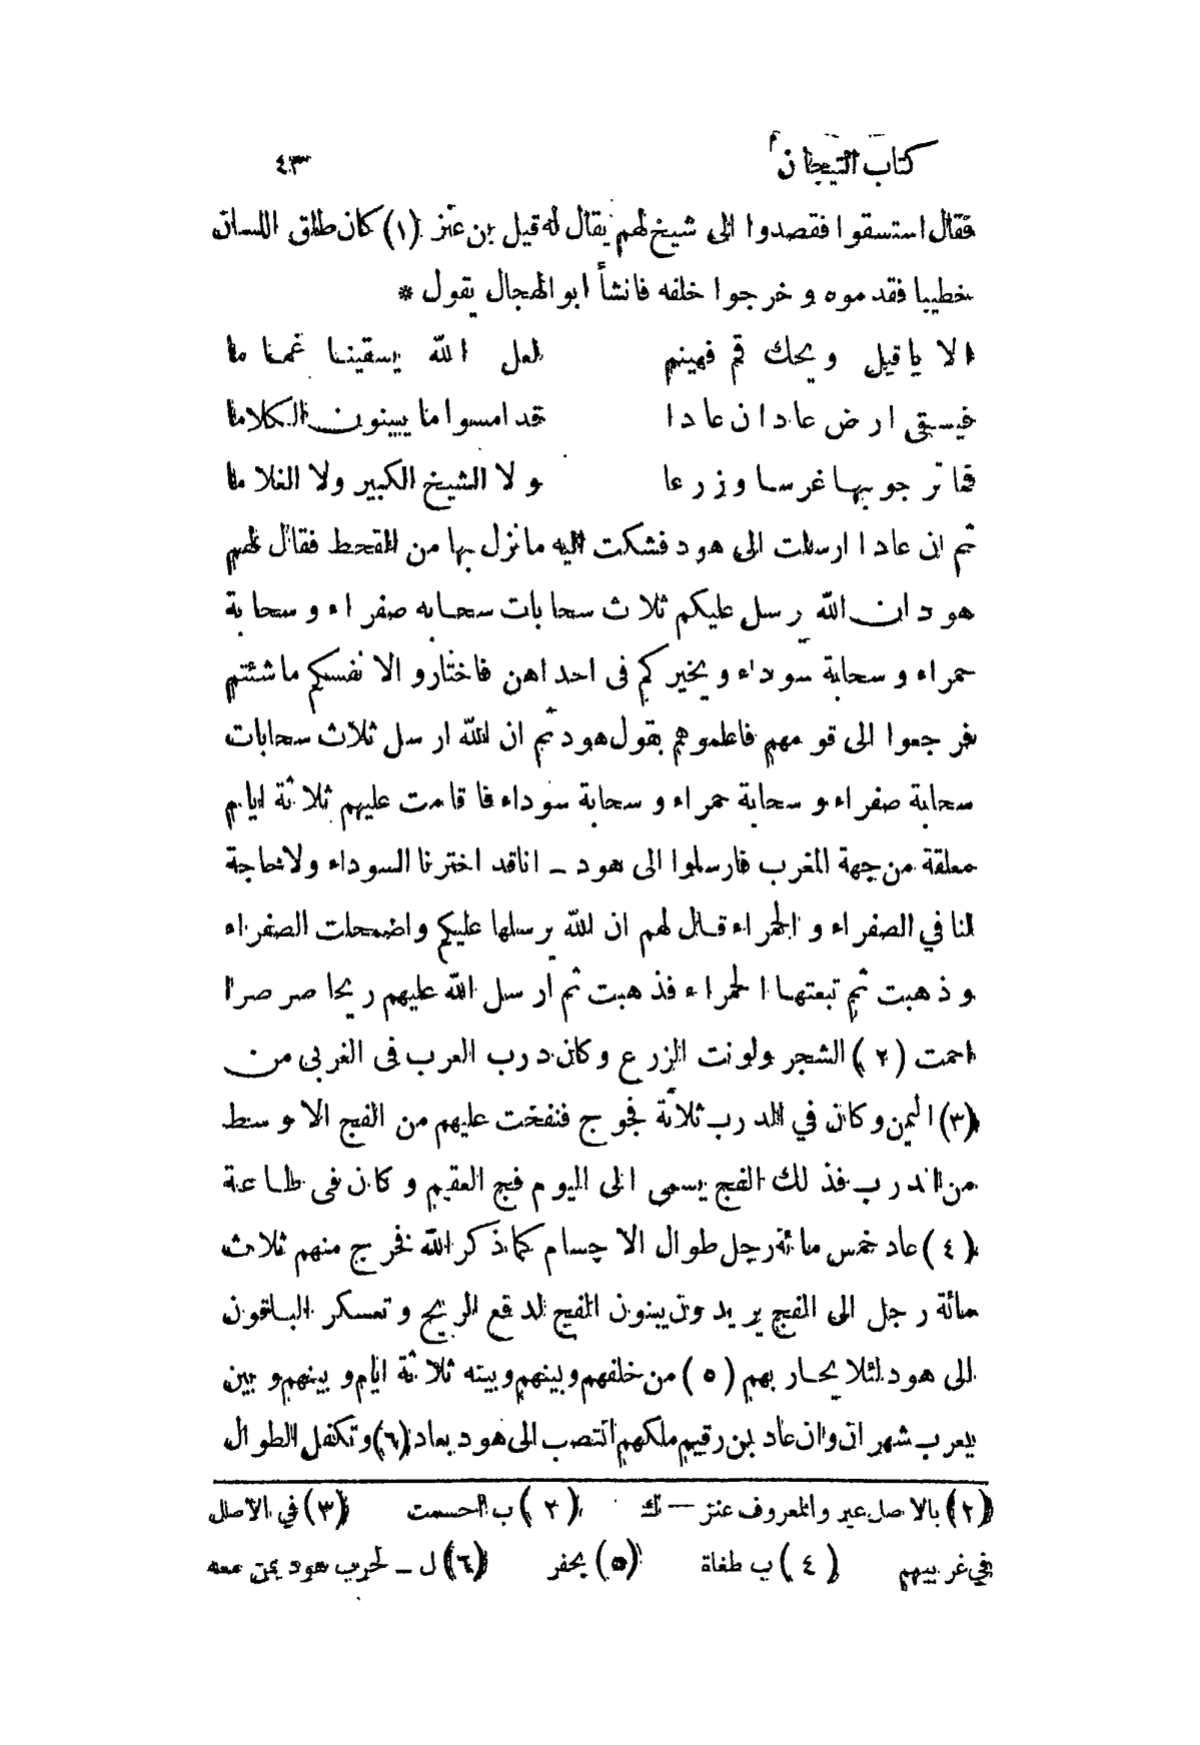 كتاب التيجان ٤٣
فقال استسقوا فقصدوا الى شيخ لهم يقال له قيل بن عنز (١) كان طلق اللسان
خطيبا فقدموه وخرجوا خلفه فانشأ ابو الهجال يقول *
الا ياقيل ويحك قم فهينم لعل الله يسقينا غماما
فيسقى ارض عاد ان عادا قد امسوا ما يبينون الكلاما
فما ترجو بها غرسا وزرعا ولا الشيخ الكبير ولا الغلاما
ثم ان عادا ارسلت الى هود فشكت اليه ما نزل بها من القحط فقال لهم
هود ان الله يرسل عليكم ثلاث سحابات سحابه صفراء وسحابة
حمراء وسحابة سوداء ويخيركم فى احداهن فاختاروا لانفسكم ماشئتم
فرجعوا الى قومهم فاعلموهم بقول هود ثم ان الله ارسل ثلاث سحابات
سحابة صفراء وسحابة حمراء وسحابة سوداء فاقامت عليهم ثلاثة ايام
معلقة من جهة المغرب فارسلوا الى هود ــ اناقد اخترنا السوداء ولاحاجة
لنا في الصفراء والحمراء قال لهم ان الله يرسلها عليكم واضمحلت الصفراء
وذهبت ثم تبعتها الحمراء فذهبت ثم ارسل الله عليهم ريحا صرصرا
احمت (٢) الشجر ولونت الزرع وكان درب العرب فى الغربى من
(٣) اليمن وكان في الدرب ثلاثة فجوج فنفخت عليهم من الفج الاوسط
من الدرب فذلك الفج يسمى الى اليوم فج العقيم وكان فى طاعة
(٤) عاد خمس مائة رجل طوال الاجسام كما ذكر الله فخرج منهم ثلاث
مائة رجل الى الفج يريدون يبنون الفج لدفع الريح وتعسكر الباقون
الى هود لئلا يحاربهم (٥) من خلفهم وبينهم وبينه ثلاثة ايام وبينهم وبين
يعرب شهران وان عاد بن رقيم ملكهم انتصب الى هود بعاد (٦) وتكفل الطوال
(٢) بالاصل عير والمعروف عنز — ك (٢) ب احسمت (٣) في الاصل
في غربيهم (٤) ب طغاة (٥) يحفر (٦) ل ــ لحرب هود بمن معه